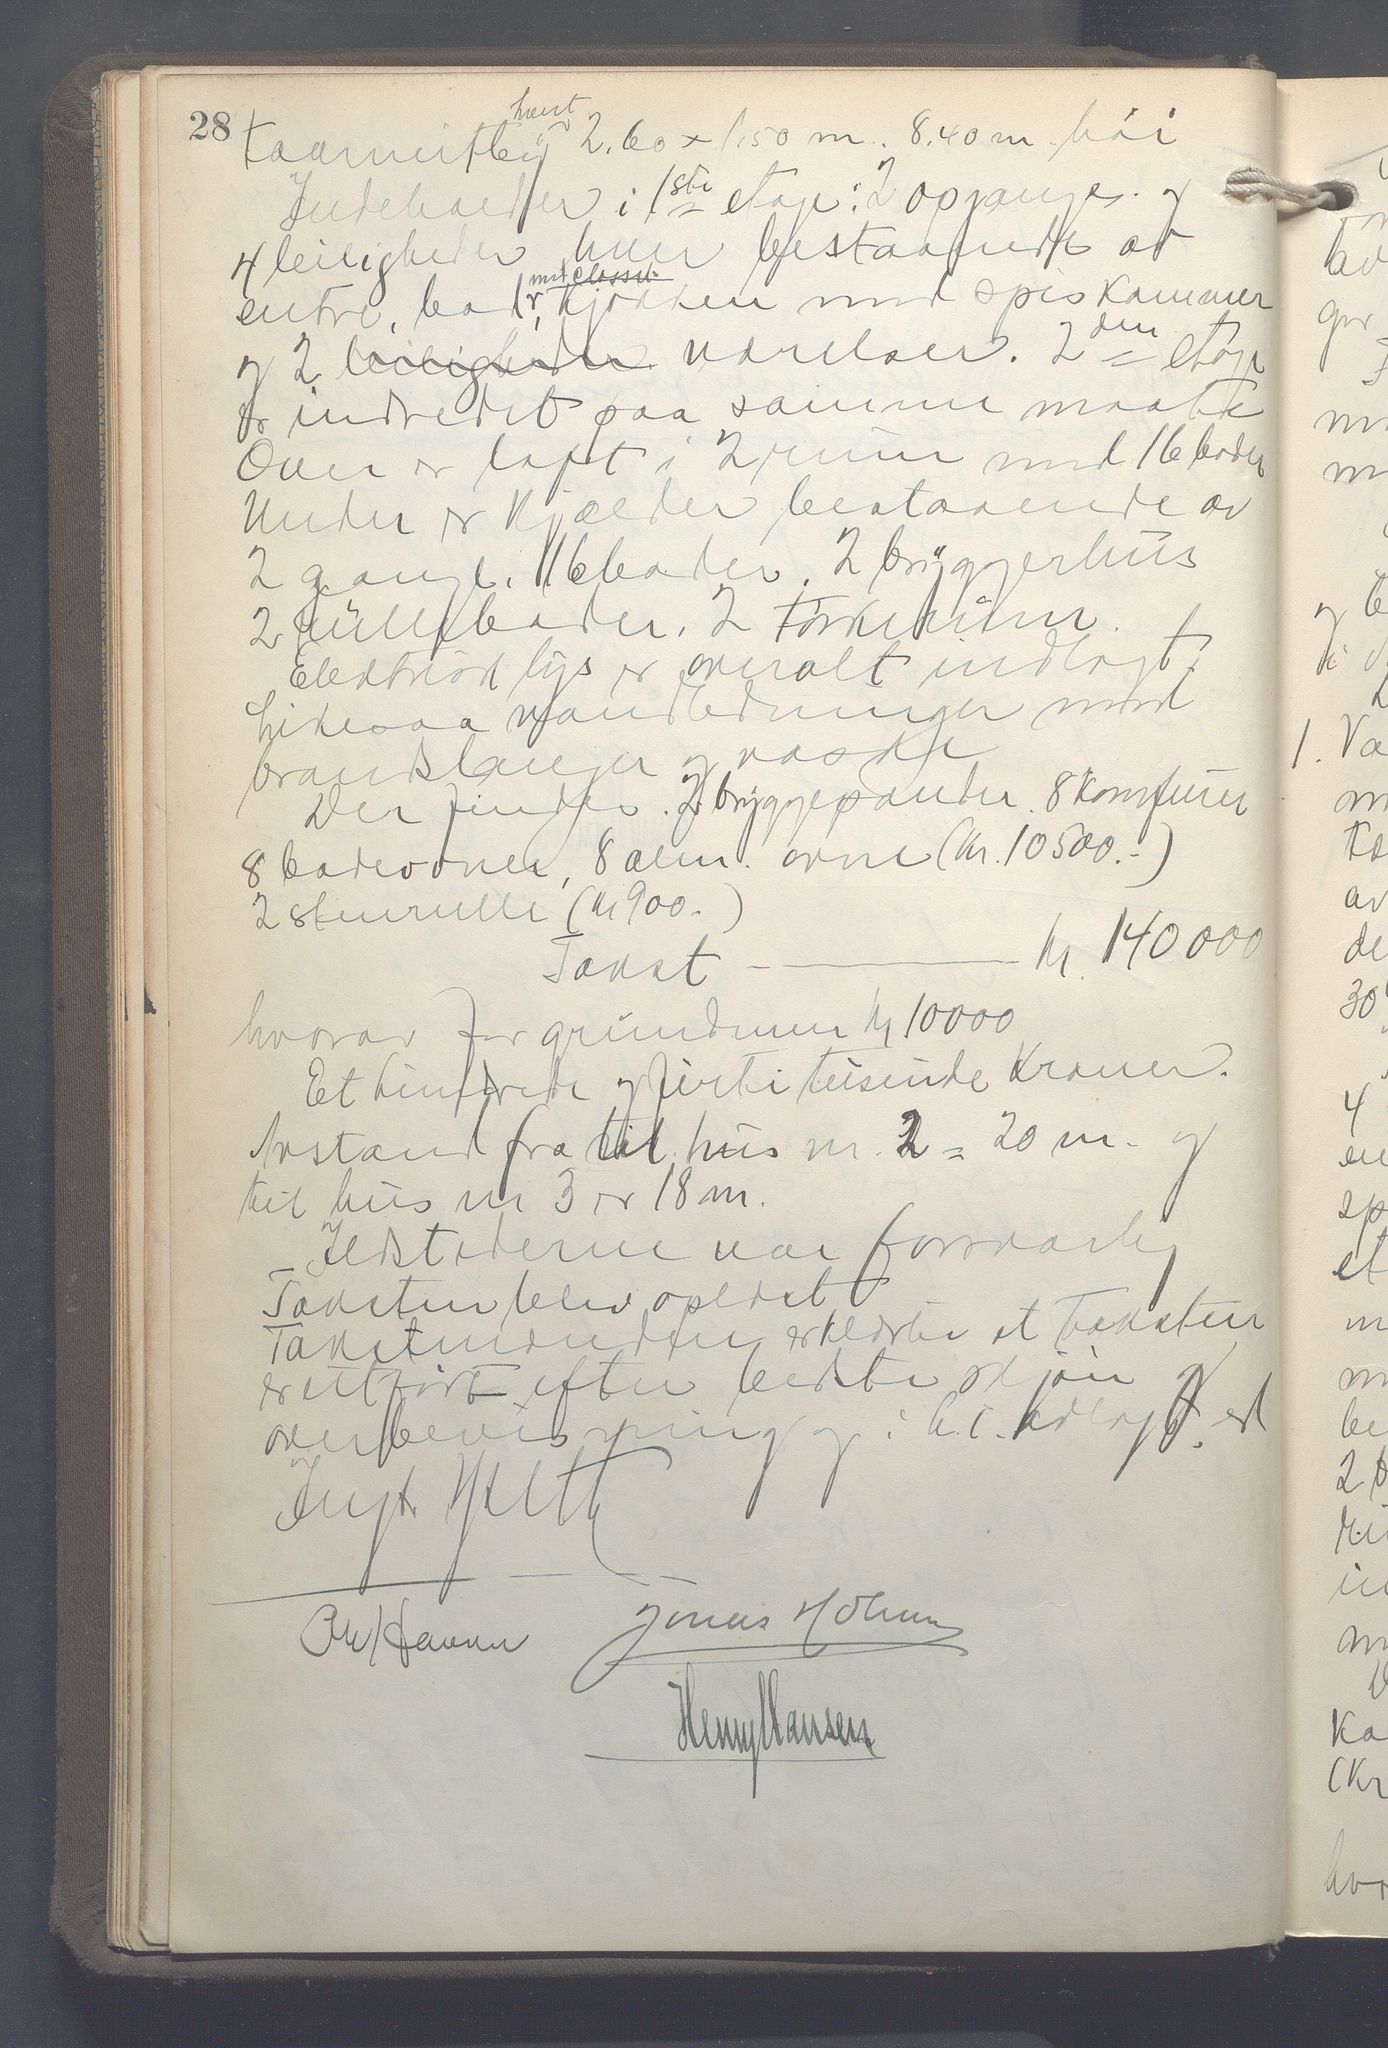 28
hvert
taarnutbyg 2.60 x 1.50 m. 8.40 m. høi
Indeholder i 1ste etage: 2 opgange og
4 leiligheder hver bestaaende av
med closset
entre, bad, kjøkken med spiskammer
og 2 leiligheder værelser. 2den etage
er indredet paa samme maate
Over er loft i 2 rum med 16 boder
Under er Kjælder bestaaende av
2 gange, 16 boder, 2 bryggerhus
2 rulleboder, 2 Tørkerum.
Elektrisk lys er overalt indlagt,
Likesaa vandledninger med
brandslanger og vaske
Der findes 2 bryggepander. 8 Komfurer
8 badeovner, 8 alm. ovne (Kr. 10500.-)
2 stenrulle (kr 900.-)
Takst — kr. 140000
hvorav for grundmur kr 10000
Et hundrede og firti tusinde Kroner.
Avstand fra til hus nr. 2 = 20 m. og
til hus nr 3 er 18 m.
Ildstederne var forsvarlig
Taksten blev oplæst
Takstmænden erklærte at taksten
er utført efter bedste skjøn og
overbevisning og i h.t. avlagt ed
Jonas Holmen
Henry Hansen
1. Va
30
4
sp
et
2
Ka
(Kr